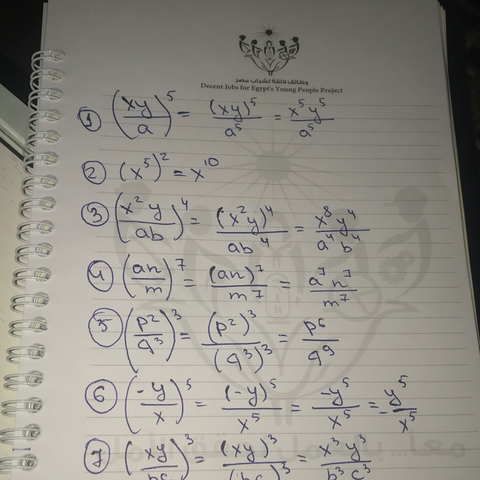 وظائف لائقة لشباب مصر
Decent Jobs for Egypt's Young People Project
1 (xy/a)^5 = (xy)^5/a^5 = x^5y^5/a^5
2 (x^5)^2 = x^10
3 (x^2y/ab)^4 = (x^2y)^4/ab^4 = x^8y^4/a^4b^4
4 (an/m)^7 = (an)^7/m^7 = a^7n^7/m^7
5 (p^2/q^3)^3 = (p^2)^3/(q^3)^3 = p^6/q^9
6 (-y/x)^5 = (-y)^5/x^5 = -y^5/x^5 = -y^5/x^5
7 (xy/bc)^3 = (xy)^3/(bc)^3 = x^3y^3/b^3c^3